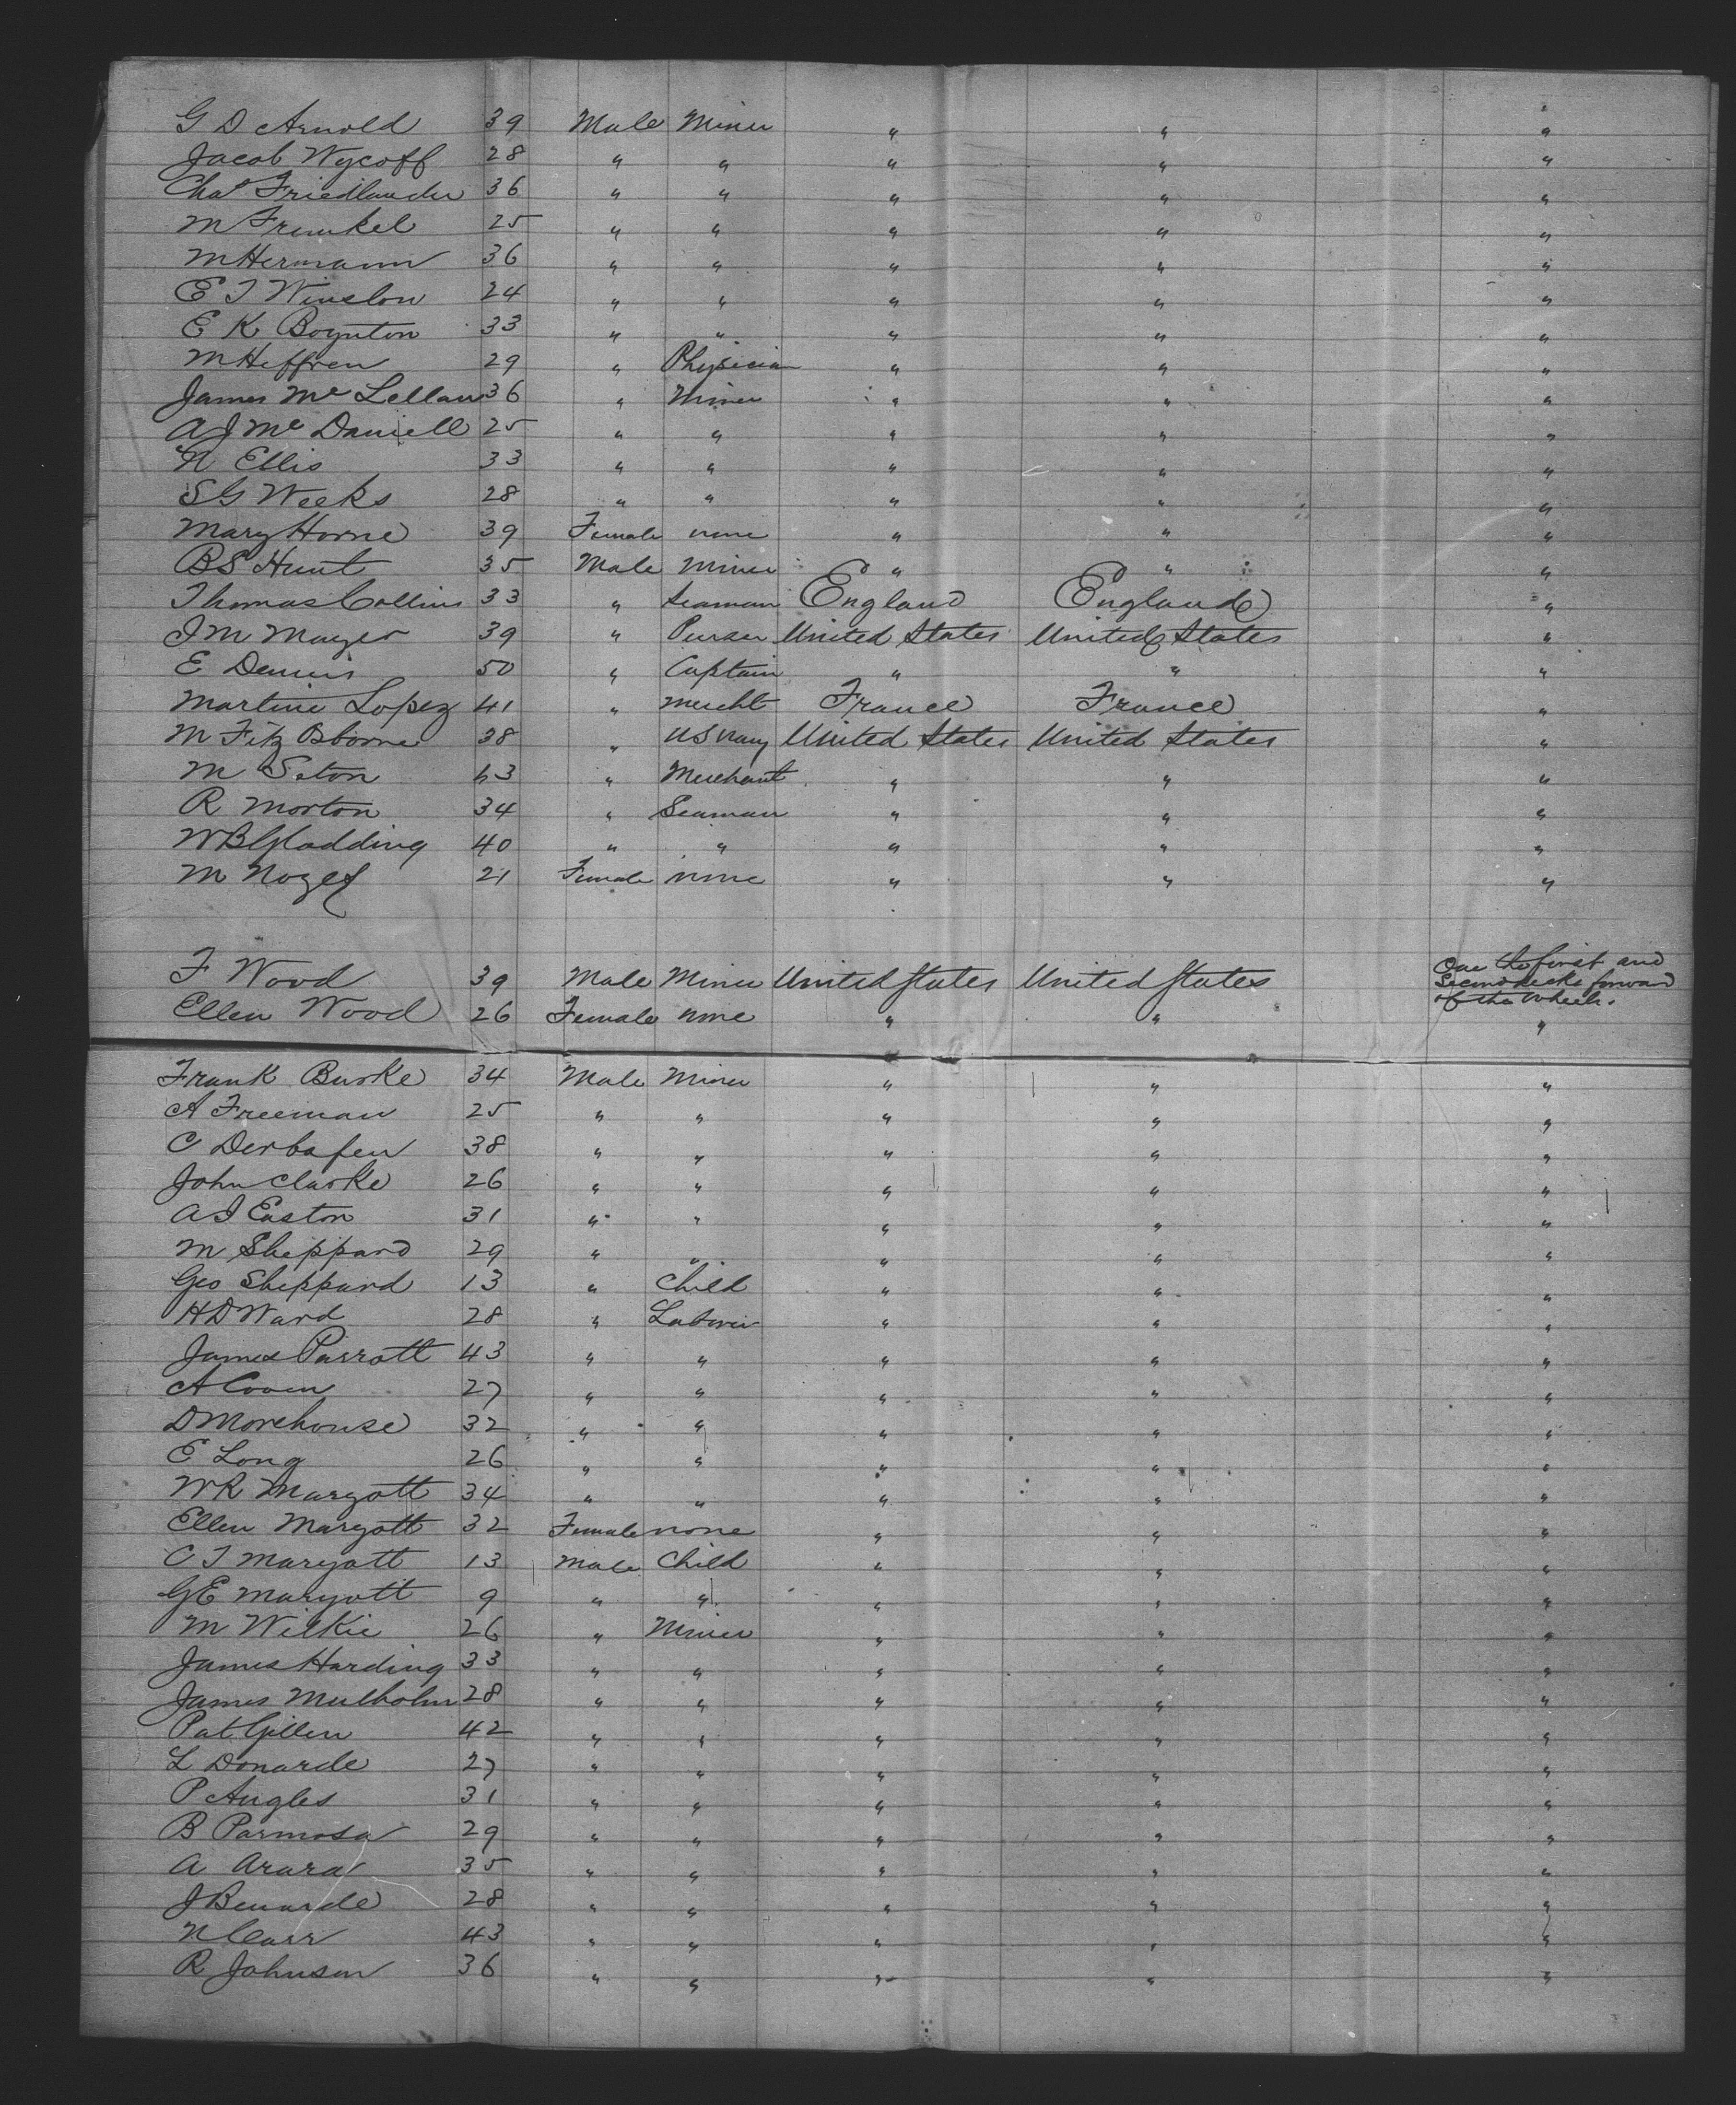 G D Arnold 39 Male Miner " " "
Jacob Wycoff 28 " " " " "
Chas Friedlander 36 " " " " "
M Frenkel 25 " " " " "
M Hermann 36 " " " " "
E T Winslow 24 " " " " "
E K Boynton 33 " " " " "
M Heffren 29 " Physician " " "
James Mc Lellan 36 " Miner " " "
A J Mc Daniell 25 " " " " "
N Ellis 33 " " " " "
S G Weeks 28 " " " " "
Mary Horne 39 Female none " " "
B S Hunt 35 Male Miner " " "
Thomas Collins 33 " Seaman England England "
J M Mayer 39 " Purser United States United States "
E Dennis 50 " Captain " " "
Martini Lopez 41 " Mercht France France "
M Fitz Osborne 38 " US Navy United States United States "
M Seton 43 " Merchant " " "
R Morton 34 " Seaman " " "
W B Gladding 40 " " " " "
M 21 Female none " " "
F Wood 39 Male Miner United States United States One the first and
Second decks forward
of the Wheels.
Ellen Wood 26 Female none " " "
Frank Burke 34 Male Miner " " "
A Freeman 25 " " " " "
C Derbafen 38 " " " " "
John Clarke 26 " " " " "
A J Easton 31 " " " " "
M Sheppard 29 " " " " "
Geo Sheppard 13 " Child " " "
H D Ward 28 " Laborer " " "
James Parrott 43 " " " " "
A Coven 27 " " " " "
D Morehouse 32 " " " " "
E Long 26 " " " " "
W R Maryott 34 " " " " "
Ellen Maryott 32 Female none " " "
C T Maryott 13 Male Child " " "
G E Maryott 9 " " " " "
M Wilkie 26 " Miner " " "
James Harding 33 " " " " "
James Mulholm 28 " " " " "
Pat Gillen 42 " " " " "
L Donarde 27 " " " " "
P Angles 31 " " " " "
B Parmosa 29 " " " " "
A Arara 35 " " " " "
J Benarde 28 " " " " "
N Carr 43 " " " " "
R Johnson 36 " " " " "